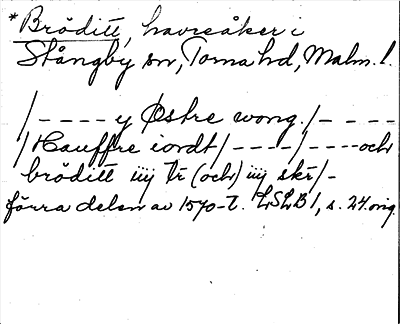 *Bröditt, havreåker i
Stångby sn, Torna hd, Malm. l.
/ - - - - y Østre wong. / - - - -
/ Hauffre iordt / - - - - / - - - - och
bröditt iiij tr (och) iiij skr / -
förra delen av 1570-t. LSLB 1, s. 24. orig.